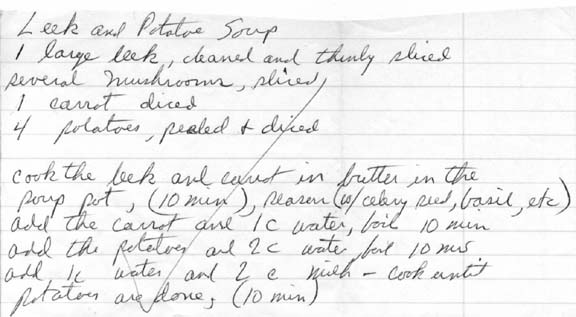 Leek and Potatoe Soup
1 large leek, cleaned and thinly sliced
several mushrooms, sliced
1 carrot diced
4 potatoes, pealed + diced
cook the leek and carrot in butter in the
soup pot, (10 min), season (w/ celery seed, basil, etc)
add the carrot and 1c water, boil 10 min
add the potatoes and 2c water boil 10 min
add 1c water and 2 c milk - cook until
potatoes are done, (10 min)